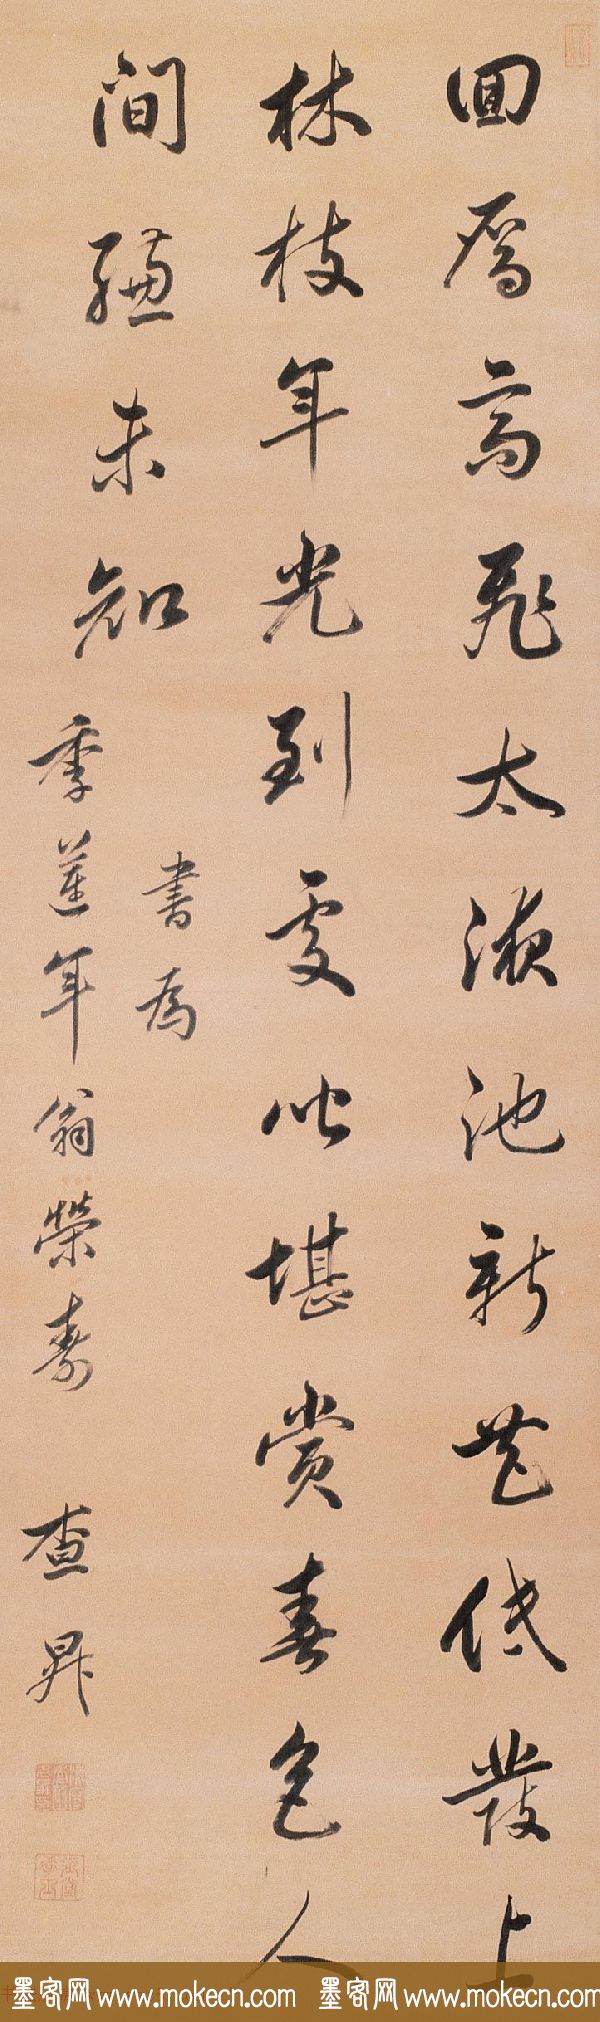 回鴈高飛太液池新花低發上
林枝年光到處皆堪賞春色人
間總未知
書為
季蓮年翁榮壽
查昇
墨客网 www.mokecn.com 墨客网 www.mokecn.com